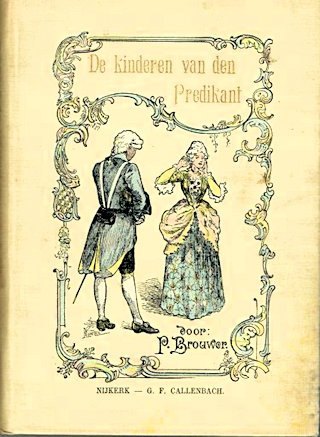 De kinderen van den
Predikant
door:
P. Brouwer.
NIJKERK — G. F. CALLENBACH.